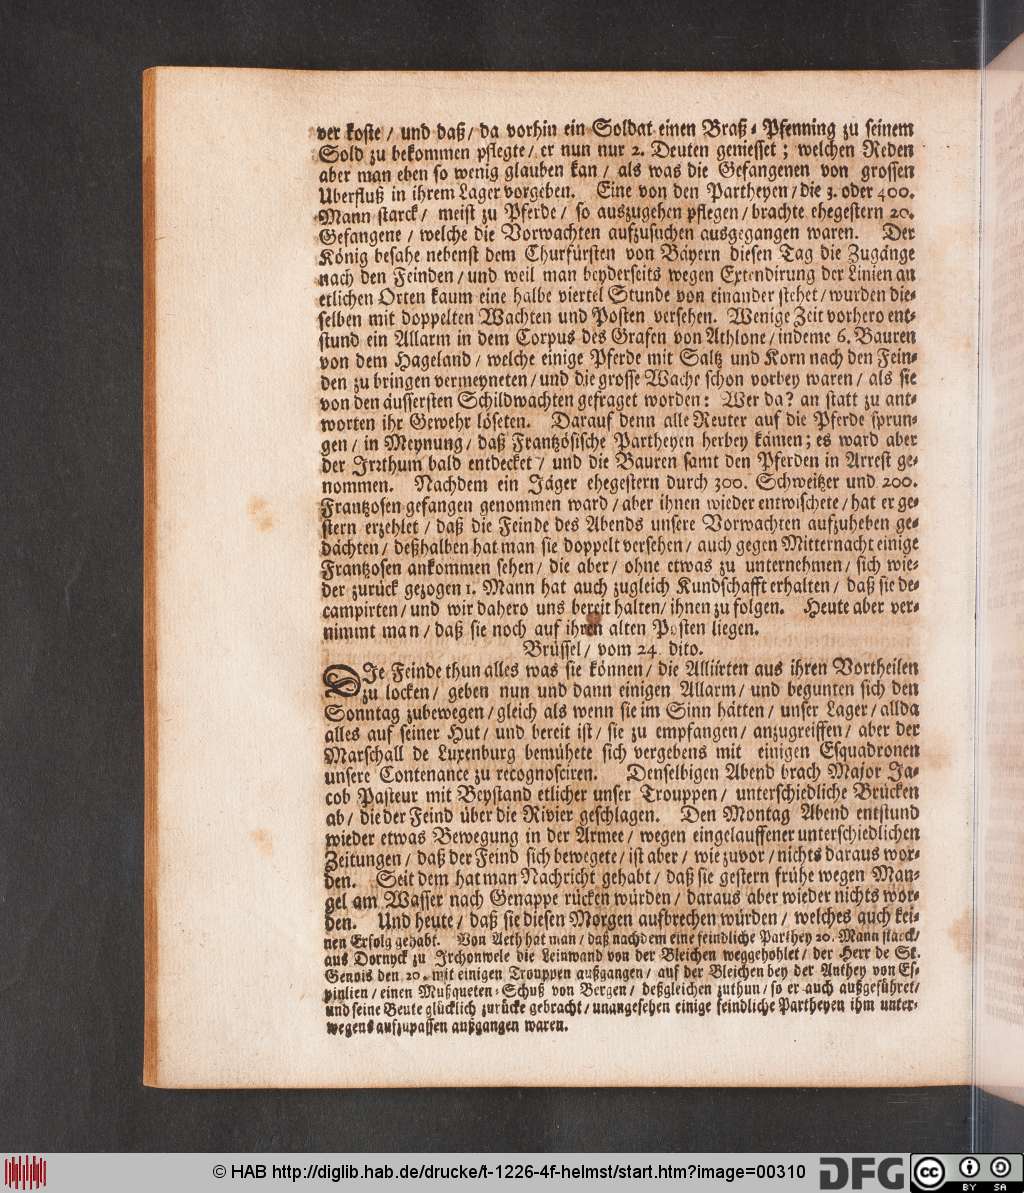 ver koste / und daß / da vorhin ein Soldat einen Braß-Pfenning zu seinem
Sold zu bekommen pflegte / er nun nur 2. Deuten geniesset ; welchen Reden
aber man eben so wenig glauben kan / als was die Gefangenen von grossen
Uberfluß in ihrem Lager vorgeben. Eine von den Partheyen / die 3. oder 400.
Mann starck / meist zu Pferde / so auszugehen pflegen / brachte ehegestern 20.
Gefangene / welche die Vorwachten aufzusuchen ausgegangen waren. Der
König besahe nebenst dem Churfürsten von Bäyern diesen Tag die Zugänge
nach den Feinden / und weil man beyderseits wegen Extendirung der Linien an
etlichen Orten kaum eine halbe viertel Stunde von einander stehet / wurden die-
selben mit doppelten Wachten und Posten versehen. Wenige Zeit vorhero ent-
stund ein Allarm in dem Corpus des Grafen von Athlone / indeme 6. Bauren
von dem Hageland / welche einige Pferde mit Saltz und Korn nach den Fein-
den zu bringen vermeyneten / und die grosse Wache schon vorbey waren / als sie
von den äussersten Schildwachten gefraget worden : Wer da? an statt zu ant-
worten ihr Gewehr löseten. Darauf denn alle Reuter auf die Pferde sprun-
gen / in Meynung / daß Frantzösische Partheyen herbey kämen ; es ward aber
der Irrthum bald entdecket / und die Bauren samt den Pferden in Arrest ge-
nommen. Nachdem ein Jäger ehegestern durch 300. Schweitzer und 200.
Frantzosen gefangen genommen ward / aber ihnen wieder entwischete / hat er ge-
stern erzehlet / daß die Feinde des Abends unsere Vorwachten aufzuheben ge-
dächten / deßhalben hat man sie doppelt versehen / auch gegen Mitternacht einige
Frantzosen ankommen sehen / die aber / ohne etwas zu unternehmen / sich wie-
der zurück gezogen 1. Mann hat auch zugleich Kundschafft erhalten / daß sie de-
campirten / und wir dahero uns bereit halten / ihnen zu folgen. Heute aber ver-
nimmt man / daß sie noch auf ihren alten Posten liegen.
Brüssel / vom 24. dito.
DIe Feinde thun alles was sie können / die Alliirten aus ihren Vortheilen
zu locken / geben nun und dann einigen Allarm / und begunten sich den
Sonntag zubewegen / gleich als wenn sie im Sinn hätten / unser Lager / allda
alles auf seiner Hut / und bereit ist / sie zu empfangen / anzugreiffen / aber der
Marschall de Luxenburg bemühete sich vergebens mit einigen Esquadronen
unsere Contenance zu recognosciren. Denselbigen Abend brach Major Ja-
cob Pasteur mit Beystand etlicher unser Trouppen / unterschiedliche Brücken
ab / die der Feind über die Rivier geschlagen. Den Montag Abend entstund
wieder etwas Bewegung in der Armee / wegen eingelauffener unterschiedlichen
Zeitungen / daß der Feind sich bewegete / ist aber / wie zuvor / nichts daraus wor-
den. Seit dem hat man Nachricht gehabt / daß sie gestern frühe wegen Man-
gel am Wasser nach Genappe rücken würden / daraus aber wieder nichts wor-
den. Und heute / daß sie diesen Morgen aufbrechen würden / welches auch kei-
nen Erfolg gehabt. Von Aeth hat man / daß nachdem eine feindliche Parthey 20. Mann starck /
aus Dornyck zu Irchonwele die Leinwand von der Bleichen weggehohlet / der Herr de St.
Genois den 20. mit einigen Trouppen außgangen / auf der Bleichen bey der Anthey von Es-
pinlien / einen Mußqueten-Schuß von Bergen / deßgleichen zuthun / so er auch außgeführet /
und seine Beute glücklich zurücke gebracht / unangesehen einige feindliche Partheyen ihm unter-
wegens aufzupassen außgangen waren.
© HAB http://diglib.hab.de/drucke/t-1226-4f-helmst/start.htm?image=00310 DFG cc BY SA